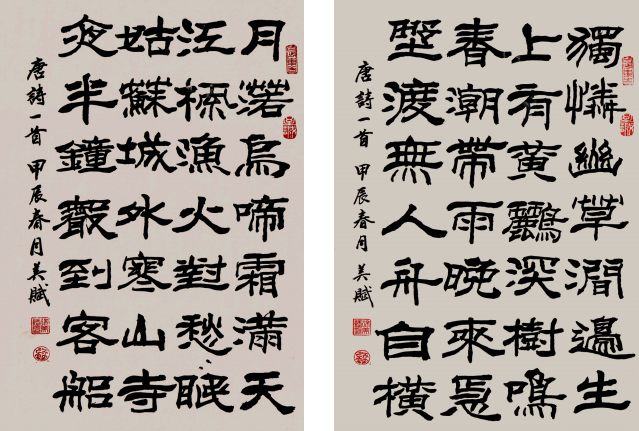 月落烏啼霜滿天
江楓漁火對愁眠
姑蘇城外寒山寺
夜半鐘聲到客船
唐詩一首 甲辰春月 美賦
獨憐幽草澗邊生
上有黃鸝深樹鳴
春潮帶雨晚來急
野渡無人舟自橫
唐詩一首 甲辰春月 美賦